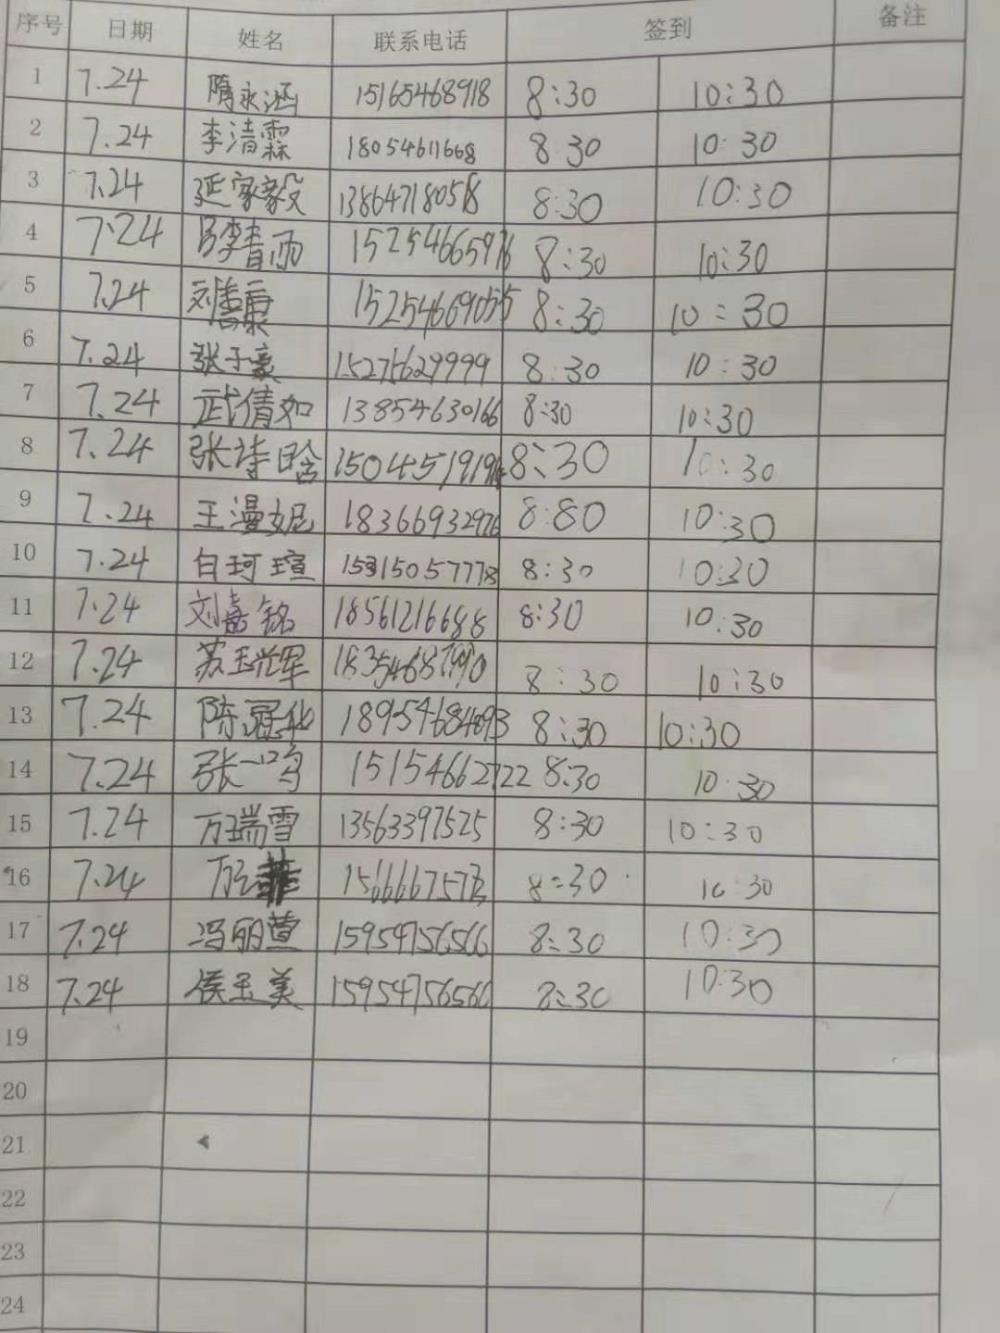 序号 日期 姓名 联系电话 签到 备注
1 7.24 隋永涵 15165468918 8:30 10:30
2 7.24 李清霖 18054611668 8:30 10:30
3 7.24 延家毅 13864718058 8:30 10:30
4 7.24 吕李青雨 15254665976 8:30 10:30
5 7.24 15254669055 8:30 10:30
6 7.24 张子豪 15275629999 8:30 10:30
7 7.24 武倩如 13854630166 8:30 10:30
8 7.24 张诗晗 8:30 10:30
9 7.24 王漫妮 18366932976 8:80 10:30
10 7.24 白珂瑄 15315057778 8:30 10:30
11 7.24 刘嘉铭 18561216688 8:30 10:30
12 7.24 8:30 10:30
13 7.24 陈冠华 18954684893 8:30 10:30
14 7.24 张一鸣 15154662722 8:30 10:30
15 7.24 万瑞雪 13563397525 8:30 10:30
16 7.24 8:30 10:30
17 7.24 冯丽萱 15954756566 8:30 10:30
18 7.24 侯玉美 15954756566 8:30 10:30
19
20
21
22
23
24